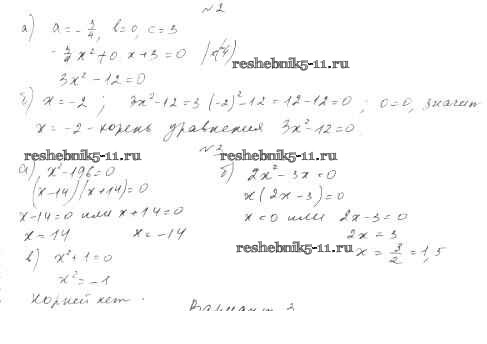 №2
а) a = -3/4, b=0, c=3
-3/4 x² + 0·x + 3 = 0 |·(-4)
reshebnik5-11.ru
3x² - 12 = 0
б) x = -2; 3x² - 12 = 3(-2)² - 12 = 12 - 12 = 0; 0=0, значит
x = -2 - корень уравнения 3x² - 12 = 0.
reshebnik5-11.ru №2 reshebnik5-11.ru
а) x² - 196 = 0
(x-14)(x+14) = 0
x-14=0 или x+14=0
x = 14 x = -14
б) 2x² - 3x = 0
x(2x-3) = 0
x = 0 или 2x-3 = 0
2x = 3
reshebnik5-11.ru
x = 3/2 = 1,5
в) x² + 1 = 0
x² = -1
корней нет.
Вариант 2